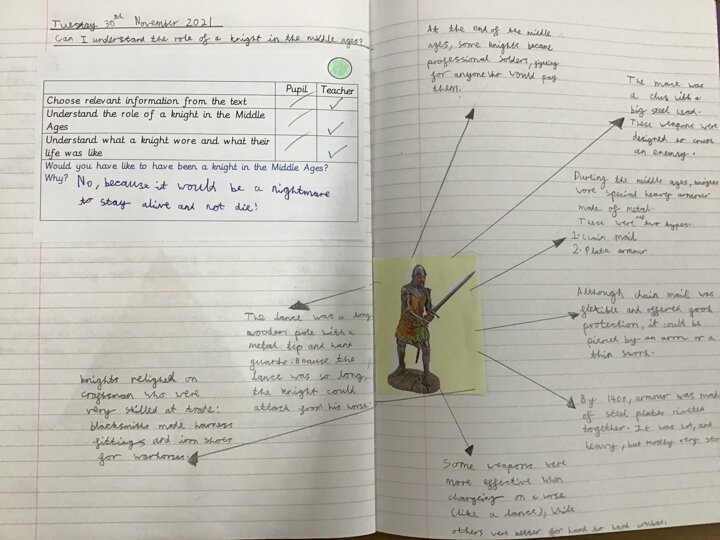 Tuesday 30th November 2021
Can I understand the role of a knight in the middle ages?
Pupil Teacher
Choose relevant information from the text
Understand the role of a knight in the Middle
Ages
Understand what a knight wore and what their
life was like
Would you have like to have been a knight in the Middle Ages?
Why? No, because it would be a nightmare
to stay alive and not die!
The lance was a long
wooden pole with a
metal tip and hand
guards. Because the
lance was so long,
the knight could
attack from his horse.
knights relighed on
craftsman who were
very skilled at trade:
blacksmiths made harness
fittings and iron shoes
for warhorses.
At the end of the middle
ages, some knights became
professional solders, figing
for anyone who would pay
them.
The mace was
a club with a
big steel head.
These weapons were
designed to crush
an enemy.
During the middle ages, knights
wore special heavy armour
made of metal.
These were two types.
1. Chain mail
2. Plate armour
Although chain mail was
flexible and offered good
protection, it could be
pierced by an arrow or a
thin sword.
By 1400, armour was made
of steel plates riveted
together. It was hot, and
heavy, but mostly very
Some weapons were
more effective when
chargeing on a horse
(like a lance), while
others were better for hand to hand combat.